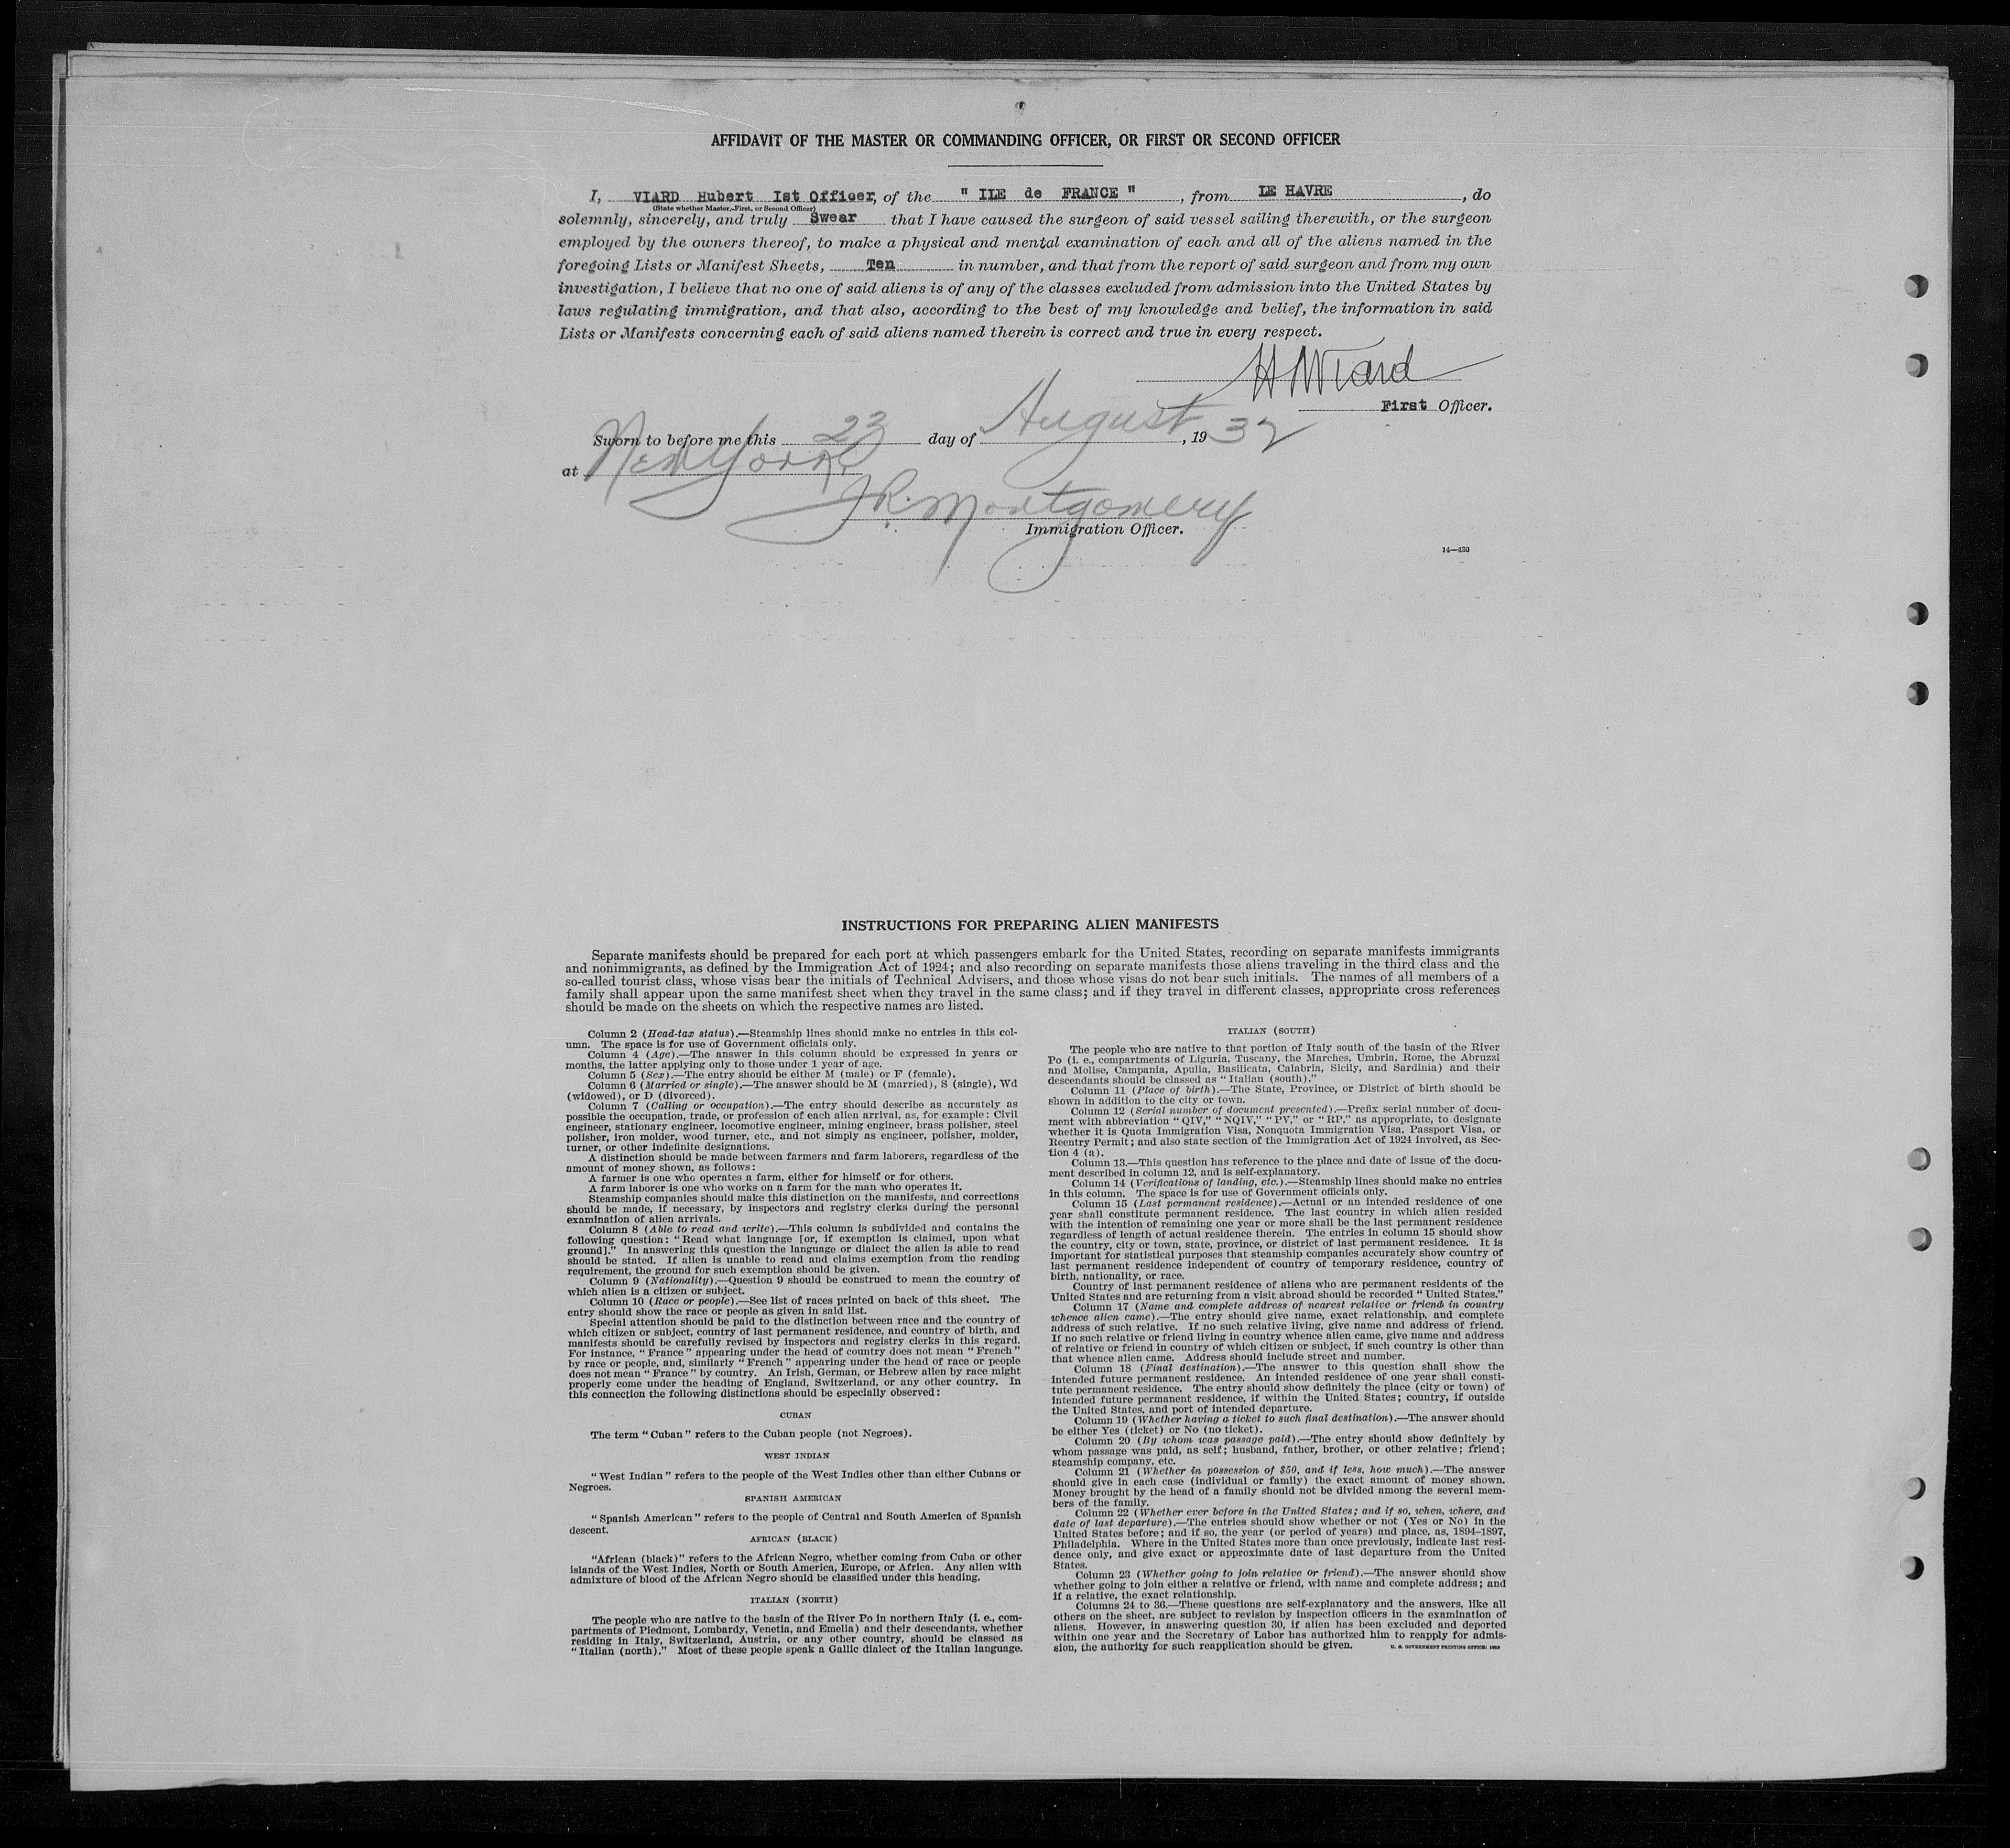 AFFIDAVIT OF THE MASTER OR COMMANDING OFFICER, OR FIRST OR SECOND OFFICER
I, VIARD Hubert Ist Officer, of the " ILE de FRANCE ", from LE HAVRE, do
(State whether Master, First, or Second Officer)
solemnly, sincerely, and truly Swear that I have caused the surgeon of said vessel sailing therewith, or the surgeon
employed by the owners thereof, to make a physical and mental examination of each and all of the aliens named in the
foregoing Lists or Manifest Sheets, Ten in number, and that from the report of said surgeon and from my own
investigation, I believe that no one of said aliens is of any of the classes excluded from admission into the United States by
laws regulating immigration, and that also, according to the best of my knowledge and belief, the information in said
Lists or Manifests concerning each of said aliens named therein is correct and true in every respect.
H Viard
First Officer.
Sworn to before me this 23 day of August, 19 32
at New York
J R. Montgomery
Immigration Officer.
14—430
INSTRUCTIONS FOR PREPARING ALIEN MANIFESTS
Separate manifests should be prepared for each port at which passengers embark for the United States, recording on separate manifests immigrants
and nonimmigrants, as defined by the Immigration Act of 1924; and also recording on separate manifests those aliens traveling in the third class and the
so-called tourist class, whose visas bear the initials of Technical Advisers, and those whose visas do not bear such initials. The names of all members of a
family shall appear upon the same manifest sheet when they travel in the same class; and if they travel in different classes, appropriate cross references
should be made on the sheets on which the respective names are listed.
Column 2 (Head-tax status).—Steamship lines should make no entries in this col-
umn. The space is for use of Government officials only.
Column 4 (Age).—The answer in this column should be expressed in years or
months, the latter applying only to those under 1 year of age.
Column 5 (Sex).—The entry should be either M (male) or F (female).
Column 6 (Married or single).—The answer should be M (married), S (single), Wd
(widowed), or D (divorced).
Column 7 (Calling or occupation).—The entry should describe as accurately as
possible the occupation, trade, or profession of each alien arrival, as, for example: Civil
engineer, stationary engineer, locomotive engineer, mining engineer, brass polisher, steel
polisher, iron molder, wood turner, etc., and not simply as engineer, polisher, molder,
turner, or other indefinite designations.
A distinction should be made between farmers and farm laborers, regardless of the
amount of money shown, as follows:
A farmer is one who operates a farm, either for himself or for others.
A farm laborer is one who works on a farm for the man who operates it.
Steamship companies should make this distinction on the manifests, and corrections
should be made, if necessary, by inspectors and registry clerks during the personal
examination of alien arrivals.
Column 8 (Able to read and write).—This column is subdivided and contains the
following question: "Read what language [or, if exemption is claimed, upon what
ground]." In answering this question the language or dialect the alien is able to read
should be stated. If alien is unable to read and claims exemption from the reading
requirement, the ground for such exemption should be given.
Column 9 (Nationality).—Question 9 should be construed to mean the country of
which alien is a citizen or subject.
Column 10 (Race or people).—See list of races printed on back of this sheet. The
entry should show the race or people as given in said list.
Special attention should be paid to the distinction between race and the country of
which citizen or subject, country of last permanent residence, and country of birth, and
manifests should be carefully revised by inspectors and registry clerks in this regard.
For instance, "France" appearing under the head of country does not mean "French"
by race or people, and, similarly "French" appearing under the head of race or people
does not mean "France" by country. An Irish, German, or Hebrew alien by race might
properly come under the heading of England, Switzerland, or any other country. In
this connection the following distinctions should be especially observed:
CUBAN
The term "Cuban" refers to the Cuban people (not Negroes).
WEST INDIAN
"West Indian" refers to the people of the West Indies other than either Cubans or
Negroes.
SPANISH AMERICAN
"Spanish American" refers to the people of Central and South America of Spanish
descent.
AFRICAN (BLACK)
"African (black)" refers to the African Negro, whether coming from Cuba or other
islands of the West Indies, North or South America, Europe, or Africa. Any alien with
admixture of blood of the African Negro should be classified under this heading.
ITALIAN (NORTH)
The people who are native to the basin of the River Po in northern Italy (i. e., com-
partments of Piedmont, Lombardy, Venetia, and Emelia) and their descendants, whether
residing in Italy, Switzerland, Austria, or any other country, should be classed as
"Italian (north)." Most of these people speak a Gallic dialect of the Italian language.
ITALIAN (SOUTH)
The people who are native to that portion of Italy south of the basin of the River
Po (i. e., compartments of Liguria, Tuscany, the Marches, Umbria, Rome, the Abruzzi
and Molise, Campania, Apulia, Basilicata, Calabria, Sicily, and Sardinia) and their
descendants should be classed as "Italian (south)."
Column 11 (Place of birth).—The State, Province, or District of birth should be
shown in addition to the city or town.
Column 12 (Serial number of document presented).—Prefix serial number of docu-
ment with abbreviation "QIV," "NQIV," "PV," or "RP," as appropriate, to designate
whether it is Quota Immigration Visa, Nonquota Immigration Visa, Passport Visa, or
Reentry Permit; and also state section of the Immigration Act of 1924 involved, as Sec-
tion 4 (a).
Column 13.—This question has reference to the place and date of issue of the docu-
ment described in column 12, and is self-explanatory.
Column 14 (Verifications of landing, etc.).—Steamship lines should make no entries
in this column. The space is for use of Government officials only.
Column 15 (Last permanent residence).—Actual or an intended residence of one
year shall constitute permanent residence. The last country in which alien resided
with the intention of remaining one year or more shall be the last permanent residence
regardless of length of actual residence therein. The entries in column 15 should show
the country, city or town, state, province, or district of last permanent residence. It is
important for statistical purposes that steamship companies accurately show country of
last permanent residence independent of country of temporary residence, country of
birth, nationality, or race.
Country of last permanent residence of aliens who are permanent residents of the
United States and are returning from a visit abroad should be recorded "United States."
Column 17 (Name and complete address of nearest relative or friend in country
whence alien came).—The entry should give name, exact relationship, and complete
address of such relative. If no such relative living, give name and address of friend.
If no such relative or friend living in country whence alien came, give name and address
of relative or friend in country of which citizen or subject, if such country is other than
that whence alien came. Address should include street and number.
Column 18 (Final destination).—The answer to this question shall show the
intended future permanent residence. An intended residence of one year shall consti-
tute permanent residence. The entry should show definitely the place (city or town) of
intended future permanent residence, if within the United States; country, if outside
the United States, and port of intended departure.
Column 19 (Whether having a ticket to such final destination).—The answer should
be either Yes (ticket) or No (no ticket).
Column 20 (By whom was passage paid).—The entry should show definitely by
whom passage was paid, as self; husband, father, brother, or other relative; friend;
steamship company, etc.
Column 21 (Whether in possession of $50, and if less, how much).—The answer
should give in each case (individual or family) the exact amount of money shown.
Money brought by the head of a family should not be divided among the several mem-
bers of the family.
Column 22 (Whether ever before in the United States; and if so, when, where, and
date of last departure).—The entries should show whether or not (Yes or No) in the
United States before; and if so, the year (or period of years) and place, as, 1894–1897,
Philadelphia. Where in the United States more than once previously, indicate last resi-
dence only, and give exact or approximate date of last departure from the United
States.
Column 23 (Whether going to join relative or friend).—The answer should show
whether going to join either a relative or friend, with name and complete address; and
if a relative, the exact relationship.
Columns 24 to 36.—These questions are self-explanatory and the answers, like all
others on the sheet, are subject to revision by inspection officers in the examination of
aliens. However, in answering question 30, if alien has been excluded and deported
within one year and the Secretary of Labor has authorized him to reapply for admis-
sion, the authority for such reapplication should be given.
U. S. GOVERNMENT PRINTING OFFICE: